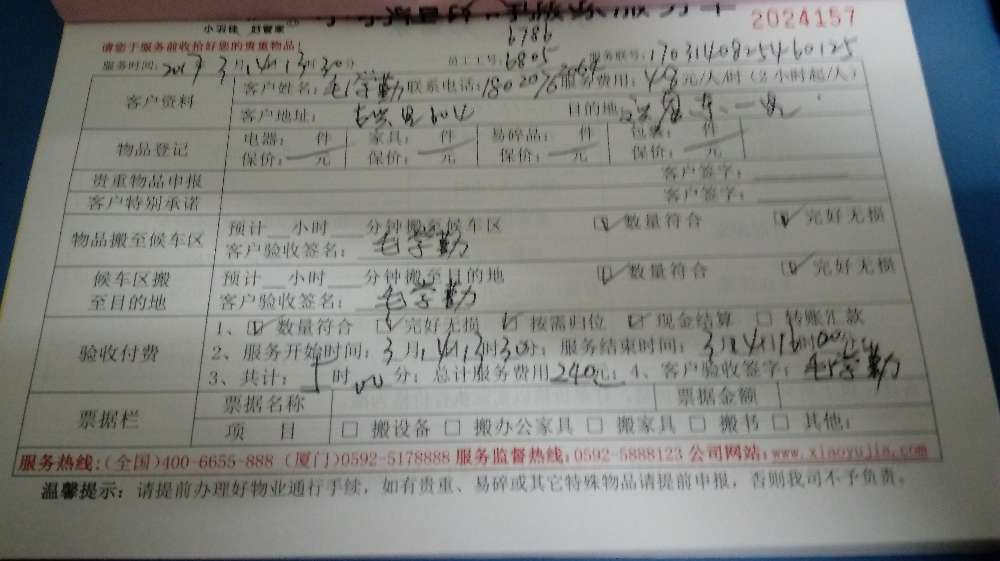 小羽佳
2024157
6786
请您于服务前收拾好您的贵重物品!
服务时间:2017年3月14日13时30分 员工工号:6805 服务联号:1703140825460125
客户资料 客户姓名:毛学勤 联系电话: 服务费用:48元/人/时(2小时起/人)
客户地址: 目的地:
物品登记 电器: 件 家具: 件 易碎品: 件 包裹: 件
保价: 元 保价: 元 保价: 元 保价: 元
贵重物品申报 客户签字:
客户特别承诺 客户签字:
物品搬至候车区 预计__小时__分钟搬至候车区 ☑数量符合 ☑完好无损
客户验收签名:毛学勤
候车区搬至目的地 预计__小时__分钟搬至目的地 ☑数量符合 ☑完好无损
客户验收签名:毛学勤
验收付费 1、☑数量符合 ☑完好无损 ☑按需归位 ☑现金结算 □转账汇款
2、服务开始时间:3月14日13时30分;服务结束时间:3月14日16时00分
3、共计:5时00分;总计服务费用240元;4、客户验收签字:毛学勤
票据栏 票据名称 票据金额
项目 □搬设备 □搬办公家具 □搬家具 □搬书 □其他:
服务热线:(全国)400-6655-888 (厦门)0592-5178888 服务监督热线:0592-5888123 公司网站:www.xiaoyujia.com
温馨提示:请提前办理好物业通行手续,如有贵重、易碎或其它特殊物品请提前申报,否则我司不予负责。